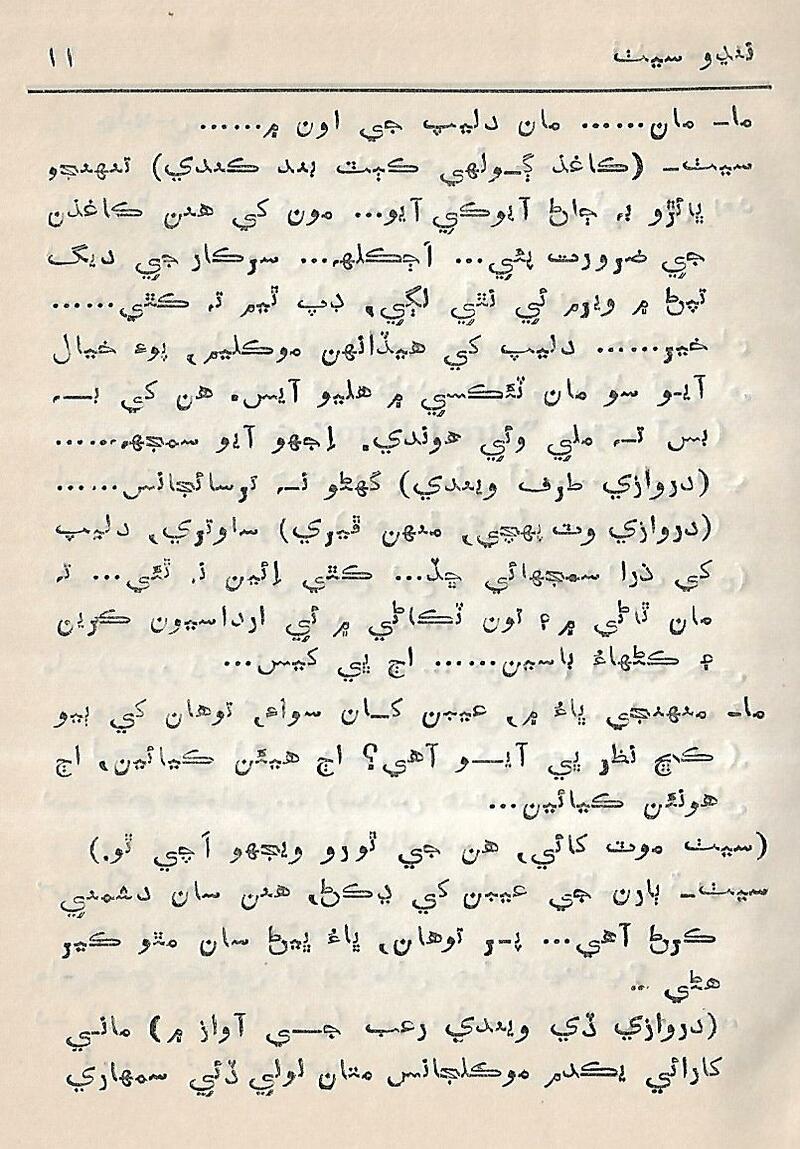 ننڍو سيٺ ١١
ما- مان...... مان دليپ جي اون ۾......
سيٺ- (ڪاغذ ڳـولهي ڪٻٽ بند ڪندي) تنهنجو
ڀائڙو به ڄاڻ آيوڪي آيو... مون کي هنن ڪاغذن
جي ضرورت پئي... اَڄڪلهه... سرڪار جي ديگ
تپڻ ۾ ويرم ئي نٿي لڳي, ڊپ ٿيم ته ڪٿي......
خير...... دليپ کي هيڏانهن موڪليم, پوءِ خيال
آيـو سو مان ٽئڪسي ۾ هليو آيس. هن کي بـــه
بس تــه ملي وئي هوندي. اِجهو آيو سمجهه......
(دروازي طرف ويندي) گهڻو نــه ترسائجانس......
(دروازي وٽ پهچي, منهن ڦيري) ساوتري, دليپ
کي ذرا سمجهائي ڇڏ... ڪٿي اِئين نه ٿئي... ته
مان ٿاڻي ۾ ۽ تون ٽڪاڻي ۾ ئي ارداسيون ڪرين
۽ ڪڻهاءُ ٻاسين...... اڄ ٻي ڪيس...
ما- منهنجي ڀاءُ ۾, عيبن کـان سواءِ, توهان کي ٻيو
ڪڇ نظر ٻي آيـــو آهي؟ اڄ هيئن ڪيائين, اڄ
هونئن ڪيائين...
(سيٺ موٽ کائي, هن جي ٿورو ويجهو اَچي ٿو.)
سيٺ- ٻارن جي عيبن کي ڍڪڻ, هنن سان دشمني
ڪرڻ آهي... پـر توهان, ڀاءُ ڀيڻ سان مٿو ڪير
هڻي ...
(دروازي ڏي ويندي رعب جـــي آواز ۾) مانـي
کارائي يڪدم موڪلجانس متان لولي ڏئي سمهاري